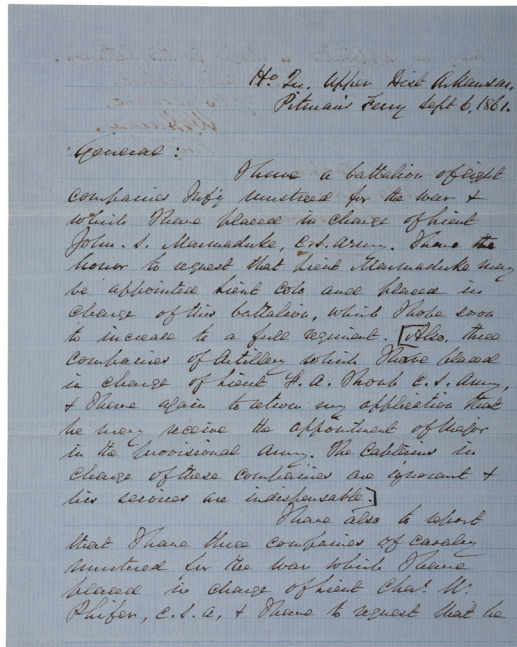 Hd Qu. Upper Dist Arkansas,
Pitman's Ferry Sept 6, 1861.
General:
I have a battalion of eight
companies Inf'y mustered for the war &
which I have placed in charge of Lieut
John. S. Marmaduke, C.S. Army. I have the
honor to request that Lieut Marmaduke may
be appointed Lieut Col and placed in
charge of this battalion, which I hope soon
to increase to a full regiment. [Also, three
companies of Artillery which I have placed
in charge of Lieut F. A. Shoup C. S. Army,
& I have again to return my application that
he may receive the appointment of Major
in the Provisional Army. The Captains in
charge of these companies are ignorant &
his services are indispensable.]
I have also to report
that I have three companies of cavalry
mustered for the war which I have
placed in charge of Lieut Chas. W.
Phifer, C.S.A, & I have to request that he